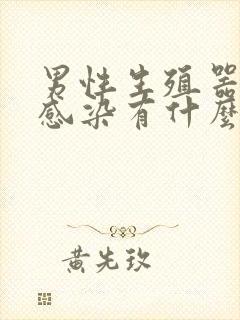 男性生殖器
感染有什麼
黃先玫